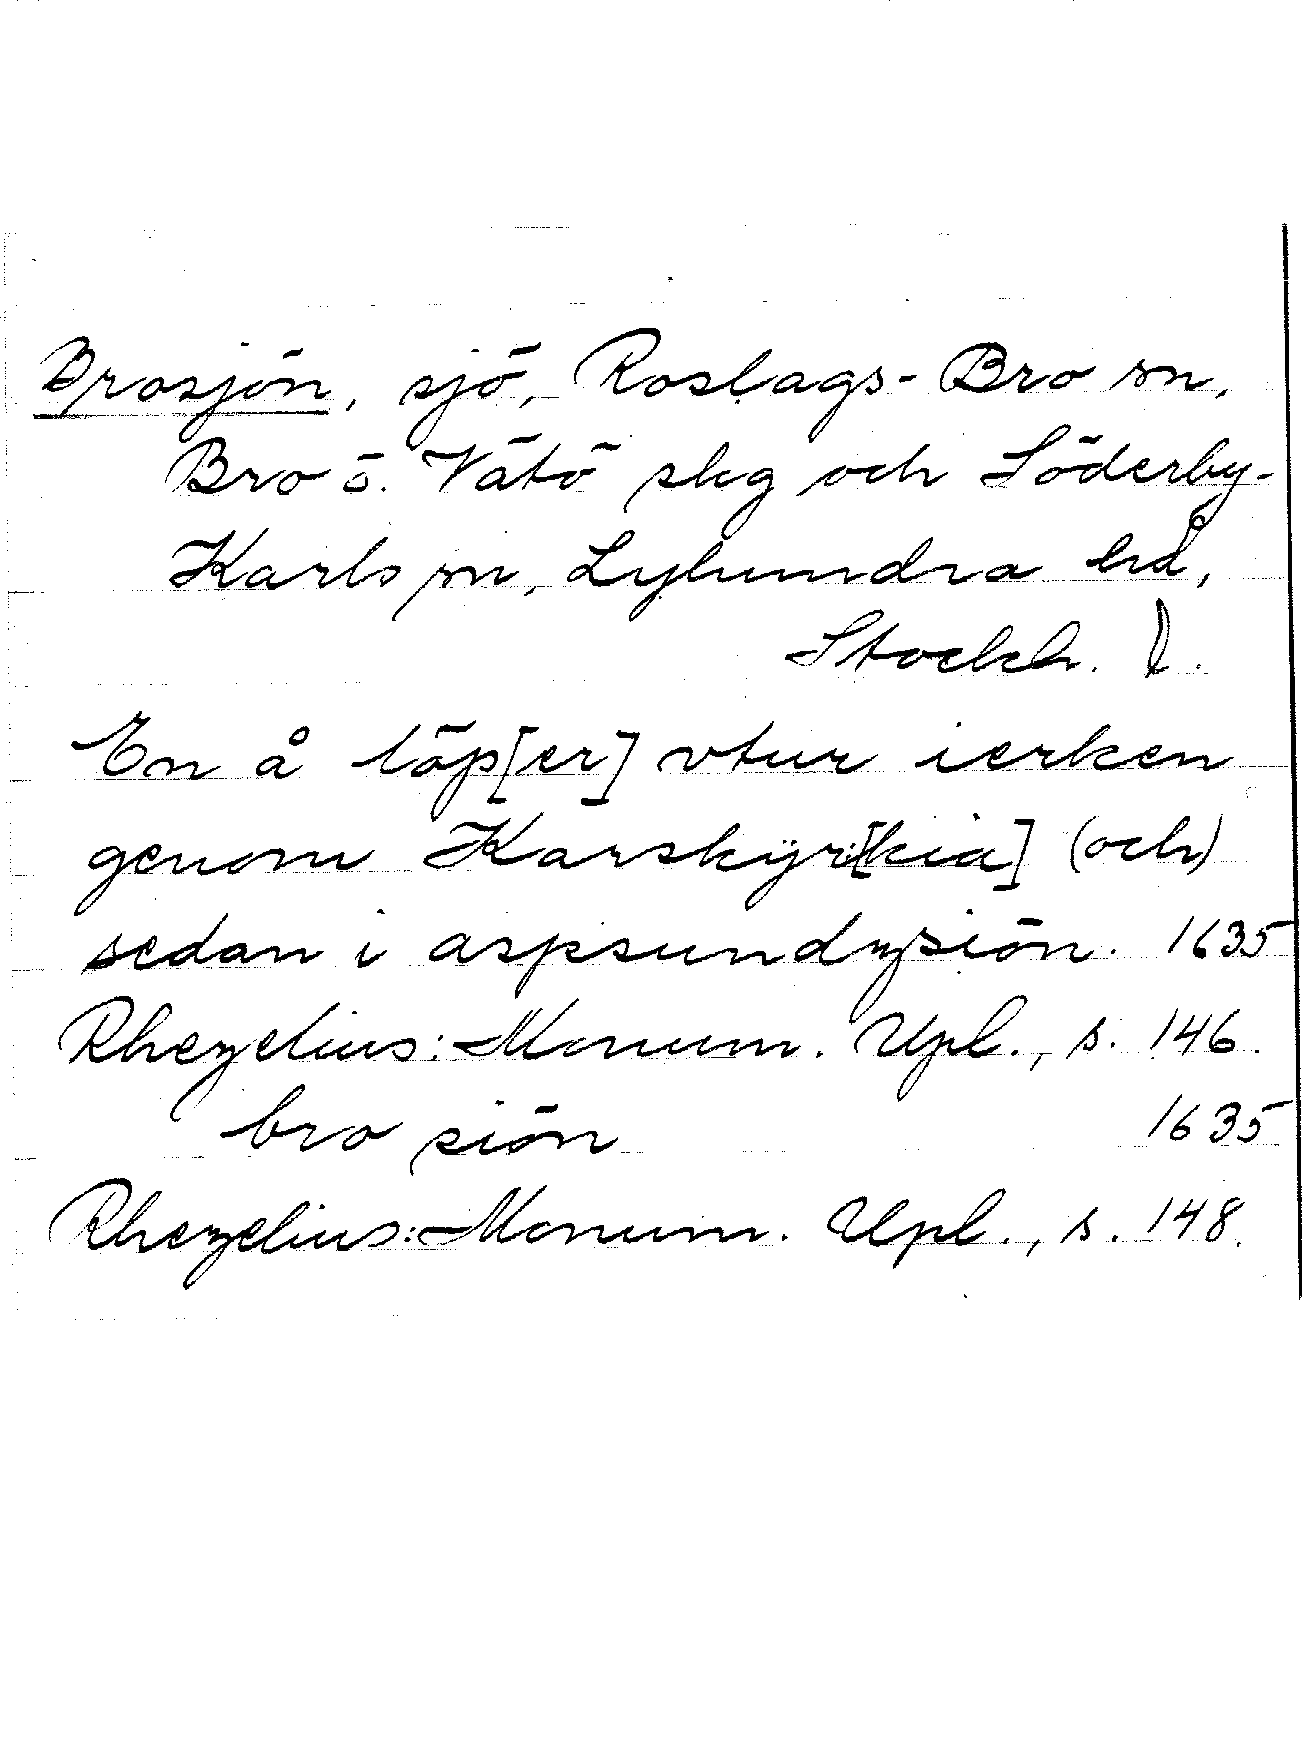 Brosjön, sjö, Roslags-Bro sn,
Bro o. Vätö skg och Söderby-
Karls sn, Lyhundra hd,
Stockh. l.
En å löp[er] vtur ierken
genom Karskyr[kia] (och)
sedan i aspsundzsiön. 1635
Rhezelius: Monum. Upl., s. 146.
bro siön 1635
Rhezelius: Monum. Upl., s. 148.